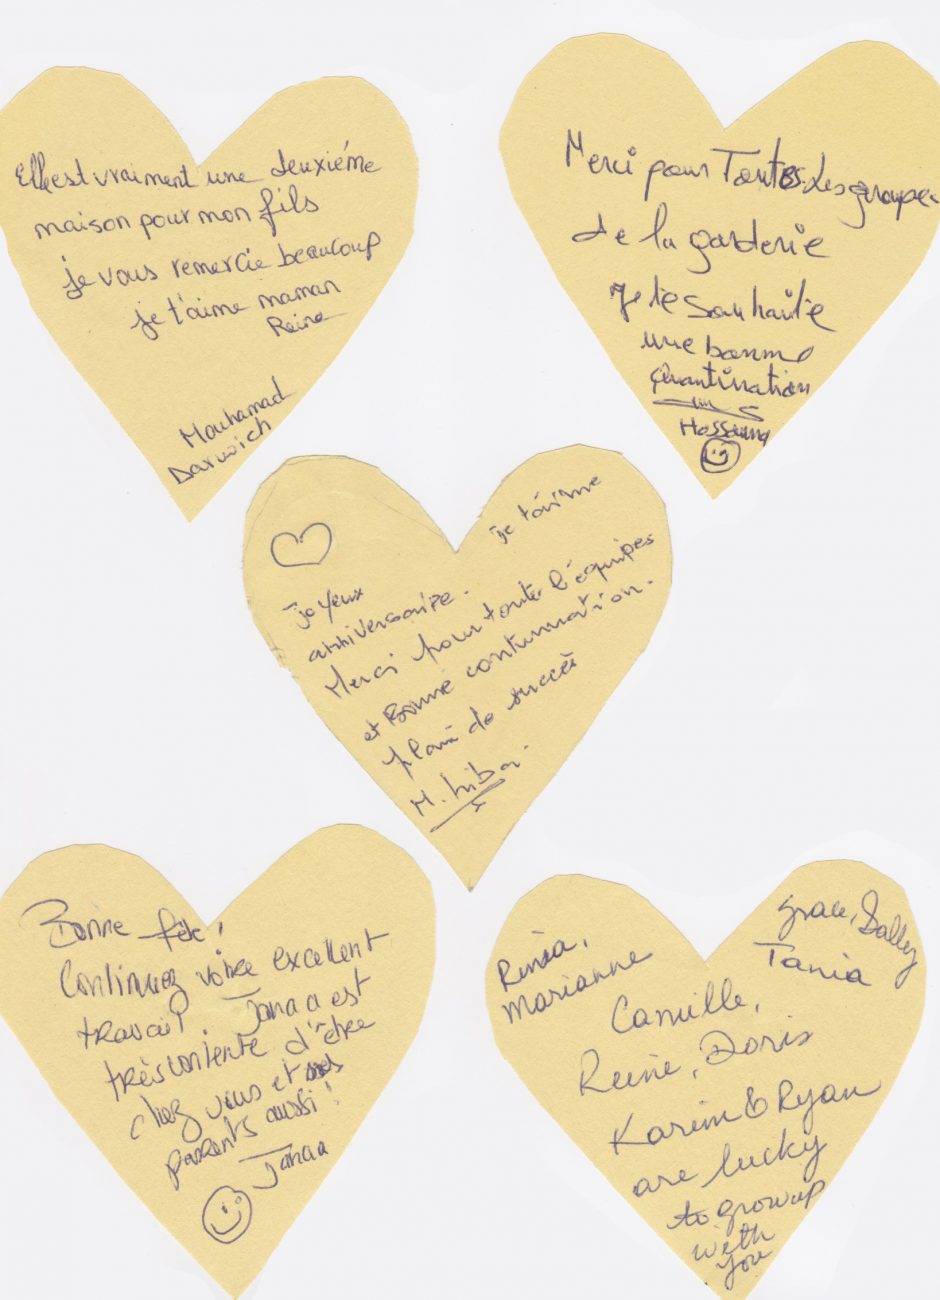 Elle est vraiment une deuxiéme
maison pour mon fils
je vous remercie beaucoup
je t'aime maman
Reine
Mouhamad
Darwich
Merci pour Toutes. Les groupes
de la garderie
Je te souhaite
une bonne
Hassouna
je t'aime
joyeux
anniversaire.
Merci pour toute l'équipes
et Bonne continuation.
plain de succès
M. Hiba.
Bonne fête!
Continuez votre excellent
travail. Janaa est
très contente d'être
chez vous et ses
parents aussi!
Janaa
Rinéa,
Marianne
Grace, Sally
Tania
Camille,
Reine, Doris
Karim & Ryan
are lucky
to grow up
with
you